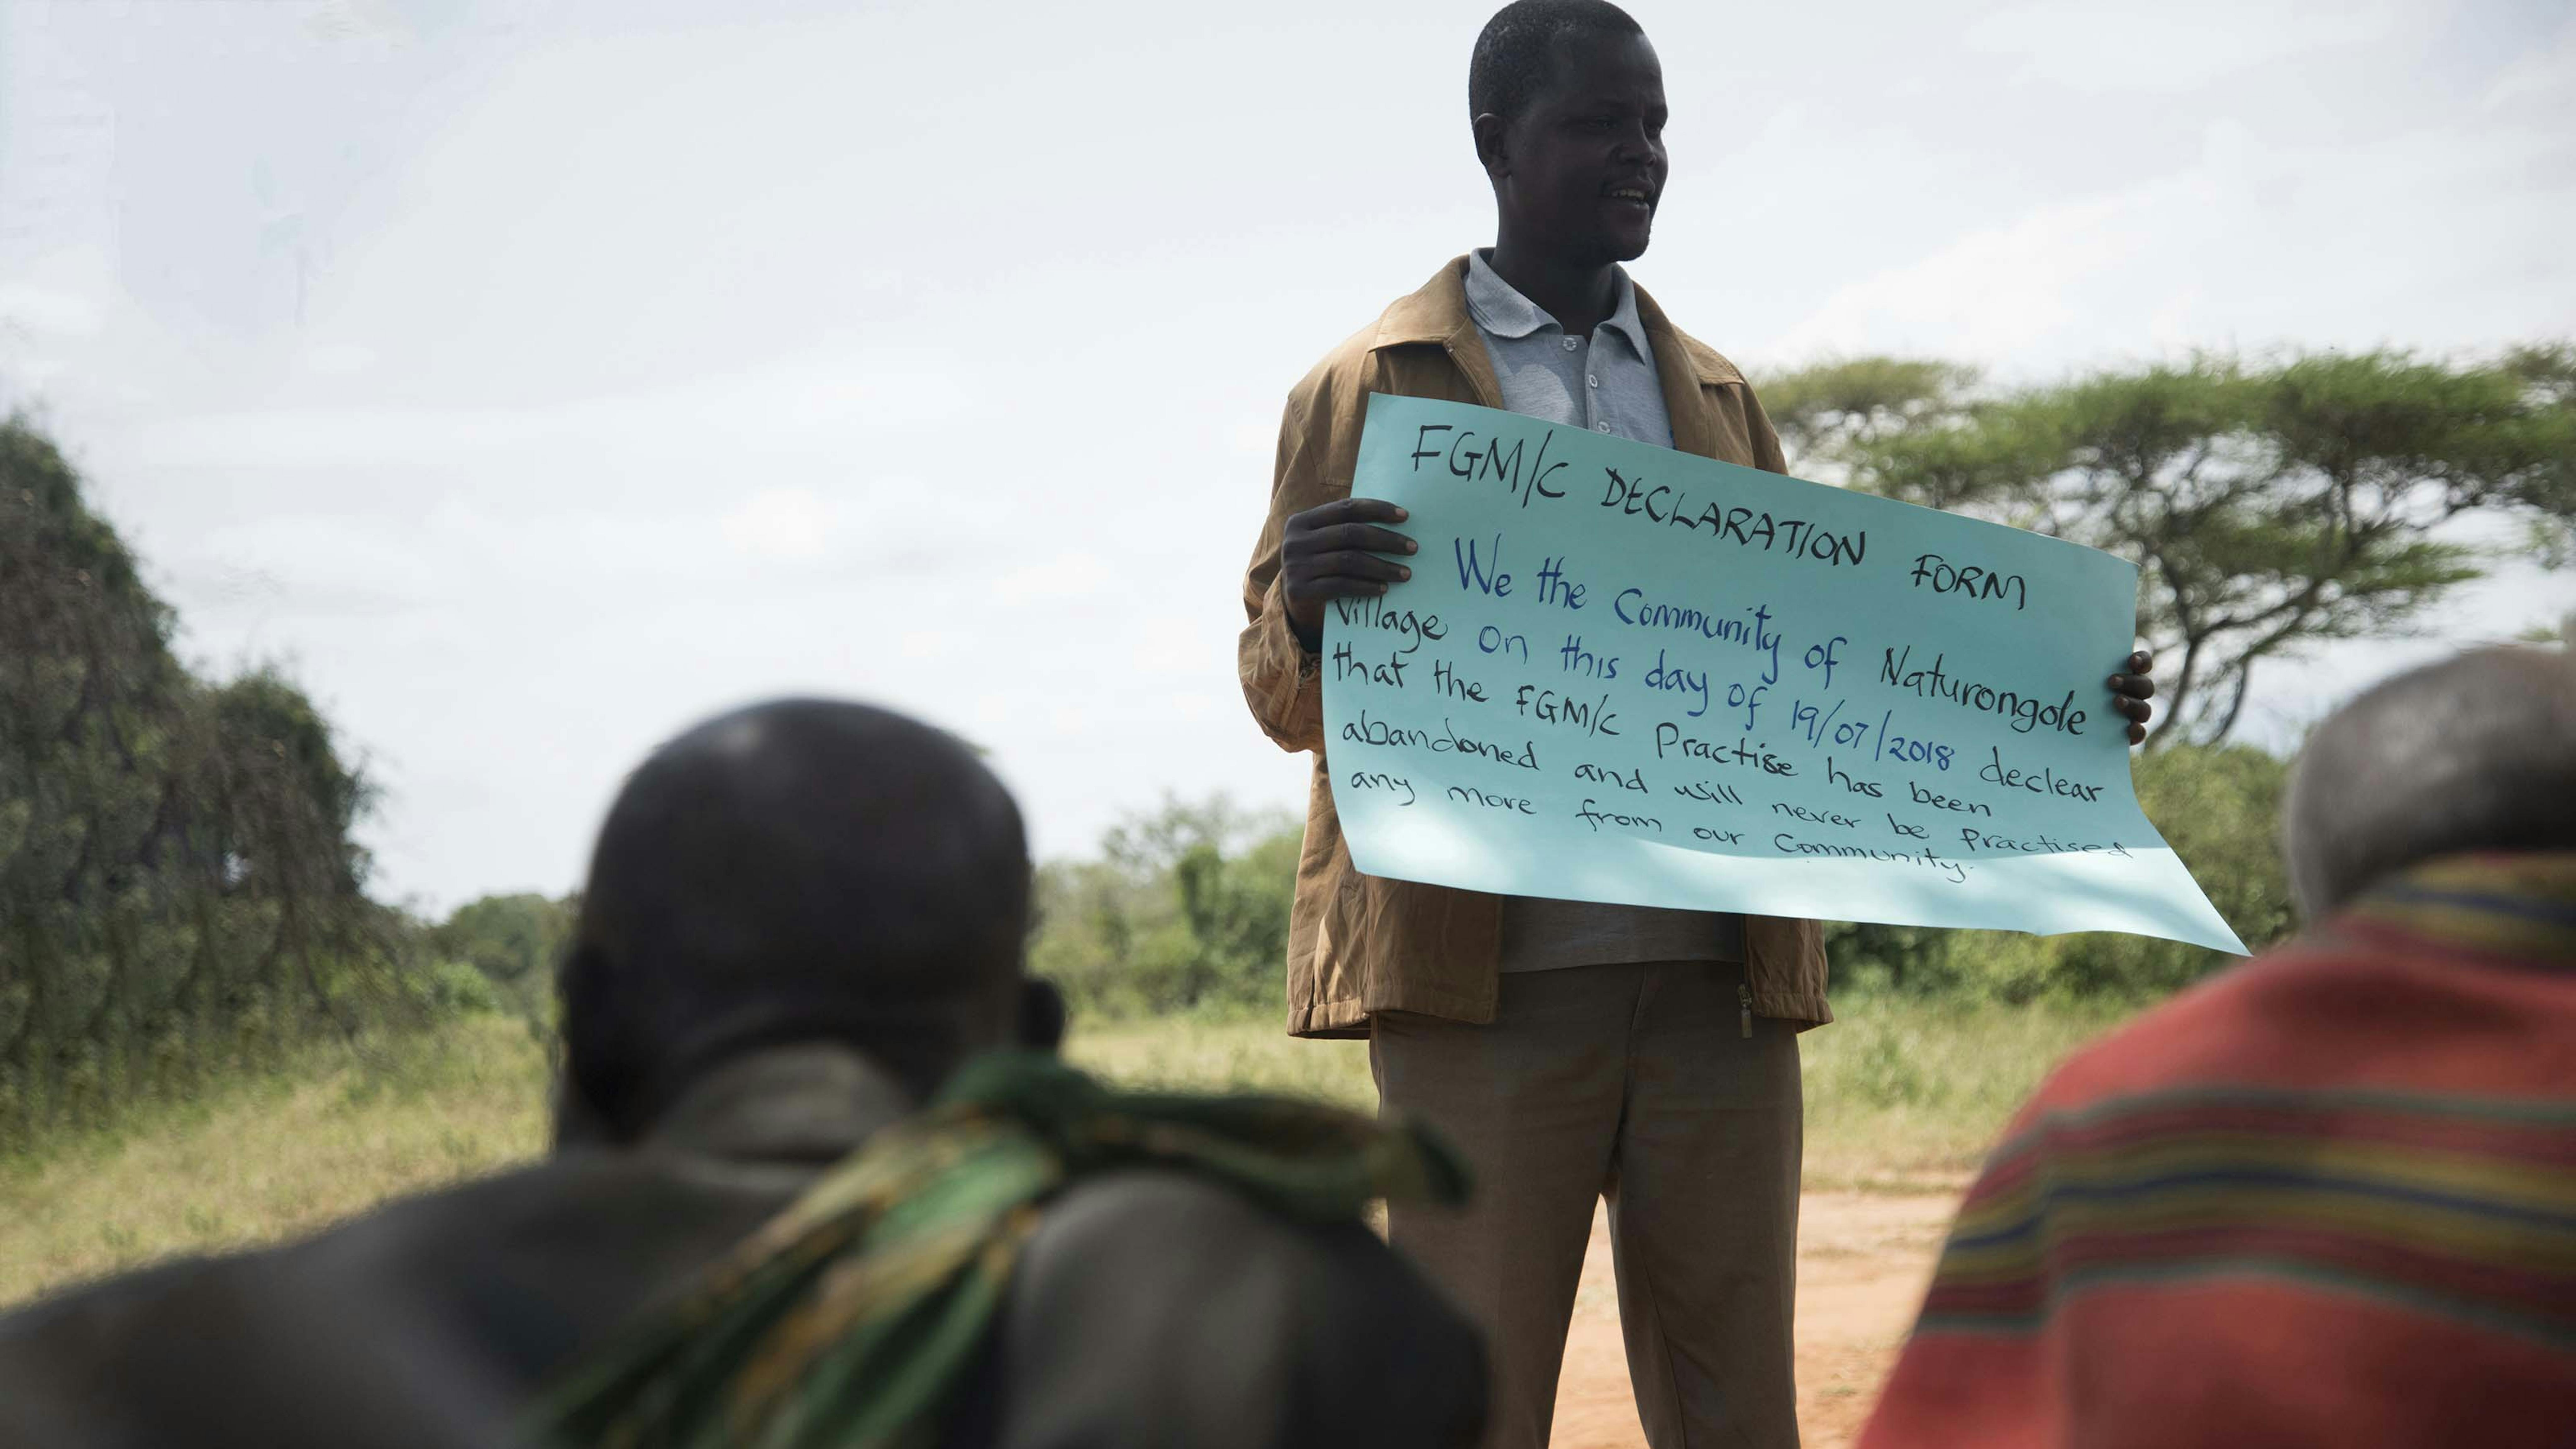 FGM/C DECLARATION FORM
We the Community of Naturongole
Village on this day of 19/07/2018 declear
that the FGM/C Practise has been
abandoned and will never be Practised
any more from our Community.